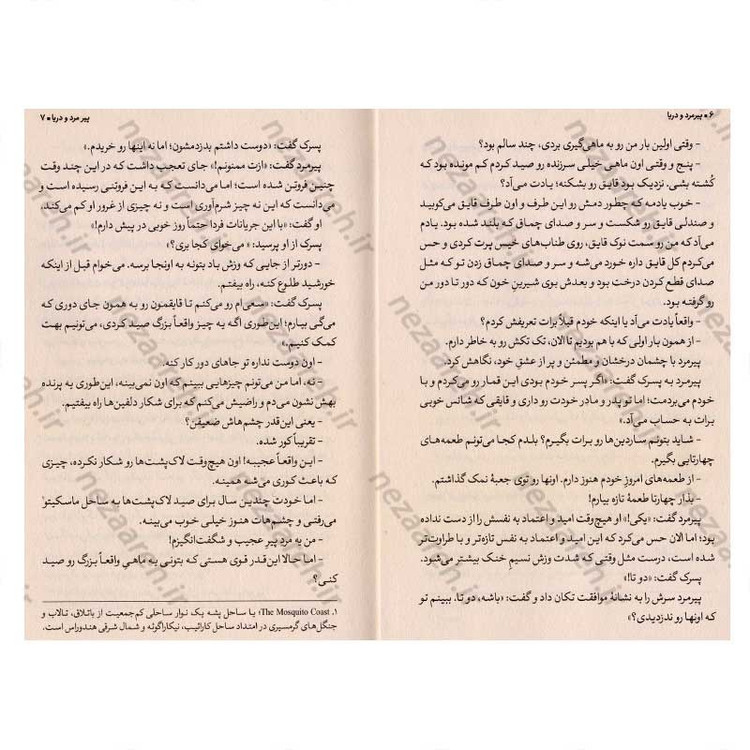 ۶ • پیرمرد و دریا
- وقتی اولین بار من رو به ماهی‌گیری بردی، چند سالم بود؟
- پنج و وقتی اون ماهی خیلی سرزنده رو صید کردم کم مونده بود که
کُشته بشی. نزدیک بود قایق رو بشکنه؛ یادت می‌آد؟
- خوب یادمه که چطور دمش رو این طرف و اون طرف قایق می‌کوبید
و صندلی قایق رو شکست و سر و صدای چماق که بلند شده بود. یادم
می‌آد که من رو سمت نوک قایق، روی طناب‌های خیس پرت کردی و حس
می‌کردم کل قایق داره خورد می‌شه و سر و صدای چماق زدن تو که مثل
صدای قطع کردن درخت بود و بعدش بوی شیرینِ خون که دور تا دور من
رو گرفته بود.
- واقعاً یادت می‌آد یا اینکه خودم قبلاً برات تعریفش کردم؟
- از همون بار اولی که با هم بودیم تا الان، تک تکش رو به خاطر دارم.
پیرمرد با چشمان درخشان و مطمئن و پر از عشق خود، نگاهش کرد.
پیرمرد به پسرک گفت: «اگر پسر خودم بودی این قمار رو می‌کردم و با
خودم می‌بردمت؛ اما تو پدر و مادر خودت رو داری و قایقی که شانس خوبی
برات به حساب می‌آد.»
- شاید بتونم ساردین‌ها رو برات بگیرم؟ بلدم کجا می‌تونم طعمه‌های
چهارتایی بگیرم.
- از طعمه‌های امروزِ خودم هنوز دارم. اونها رو توی جعبهٔ نمک گذاشتم.
- بذار چهارتا طعمهٔ تازه بیارم!
پیرمرد گفت: «یکی!» او هیچ‌وقت امید و اعتماد به نفسش را از دست نداده
بود؛ اما الان حس می‌کرد که این امید و اعتماد به نفس تازه‌تر و با طراوت‌تر
شده است، درست مثل وقتی که شدت وزش نسیمِ خنک بیشتر می‌شود.
پسرک گفت: «دو تا!»
پیرمرد سرش را به نشانهٔ موافقت تکان داد و گفت: «باشه، دو تا. ببینم تو
که اونها رو ندزدیدی؟»
پیر مرد و دریا • ۷
پسرک گفت: «دوست داشتم بدزدمشون؛ اما نه اینها رو خریدم.»
پیرمرد گفت: «ازت ممنونم!» جای تعجب داشت که در این چند وقت
چنین فروتن شده است؛ اما می‌دانست که به این فروتنی رسیده است و
می‌دانست که این نه چیز شرم‌آوری است و نه چیزی از غرور او کم می‌کند.
او گفت: «با این جریانات فردا حتماً روز خوبی در پیش دارم!»
پسرک از او پرسید: «می‌خوای کجا بری؟»
- دورتر از جایی که وزش باد بتونه به اونجا برسه. می‌خوام قبل از اینکه
خورشید طلوع کنه، راه بیفتم.
پسرک گفت: «سعی‌ام رو می‌کنم تا قایقمون رو به همون جای دوری که
می‌گی بیارم؛ این‌طوری اگه یه چیز واقعاً بزرگ صید کردی، می‌تونیم بهت
کمک کنیم.»
- اون دوست نداره تو جاهای دور کار کنه.
- نه، اما من می‌تونم چیزهایی ببینم که اون نمی‌بینه، این‌طوری یه پرنده
بهش نشون می‌دم و راضیش می‌کنم که برای شکار دلفین‌ها راه بیفتیم.
- یعنی این‌قدر چشم‌هاش ضعیفن؟
- تقریباً کور شده.
- این واقعاً عجیبه! اون هیچ‌وقت لاک‌پشت‌ها رو شکار نکرده، چیزی
که باعث کوری می‌شه همینه.
- اما خودت چندین سال برای صید لاک‌پشت‌ها به ساحل ماسکیتو۱
می‌رفتی و چشم‌هات هنوز خیلی خوب می‌بینه.
- من یه مردِ پیرِ عجیب و شگفت‌انگیزم!
- اما حالا این‌قدر قوی هستی که بتونی یه ماهیِ واقعاً بزرگ رو صید
کنی؟
۱. The Mosquito Coast؛ یا ساحل پشه یک نوار ساحلی کم‌جمعیت از باتلاق، تالاب و
جنگل‌های گرمسیری در امتداد ساحل کارائیب، نیکاراگوئه و شمال شرقی هندوراس است.
nezaareh.ir